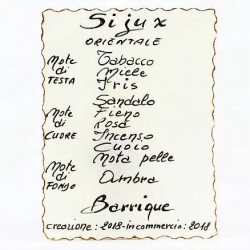 Sijux
ORIENTALE
Note di TESTA
Tabacco
Miele
Iris
Note di CUORE
Sandalo
Fieno
Rosa
Incenso
Cuoio
Nota pelle
Note di FONDO
Ambra
Barrique
creazione: 2018-in commercio: 2018